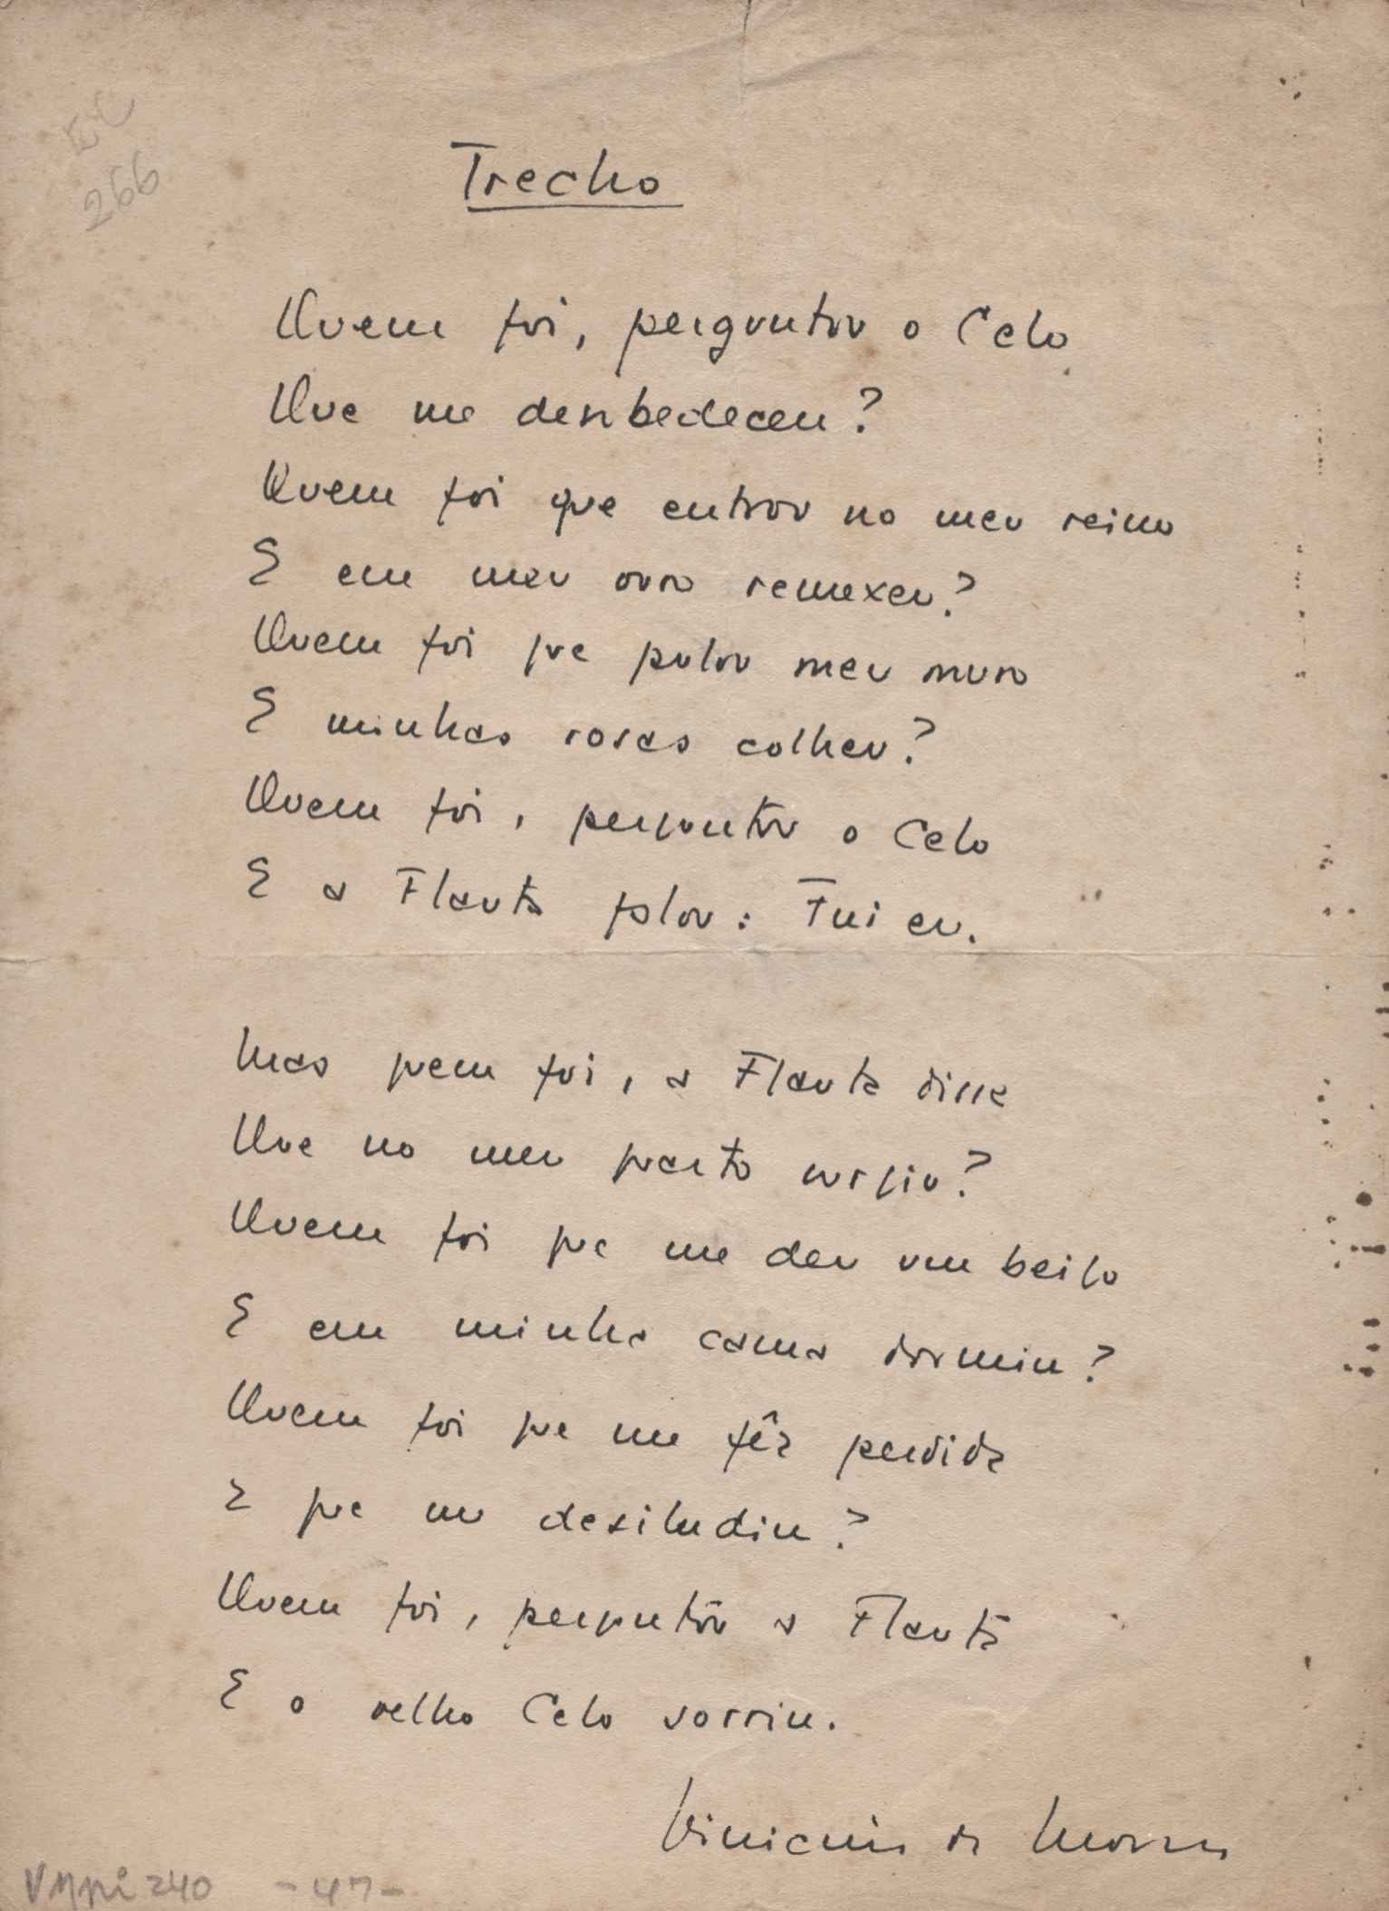 EC
266
Trecho
Quem foi, perguntou o Celo
Que me desobedeceu?
Quem foi que entrou no meu reino
E em meu ouro remexeu?
Quem foi que pulou meu muro
E minhas rosas colheu?
Quem foi, perguntou o Celo
E a Flauta falou: Fui eu.
Mas quem foi, a Flauta disse
Que no meu quarto surgiu?
Quem foi que me deu um beijo
E em minha cama dormiu?
Quem foi que me fêz perdida
E que me desiludiu?
Quem foi, perguntou a Flauta
E o velho Celo sorriu.
Vinicius de Moraes
VMpi 240 -47-